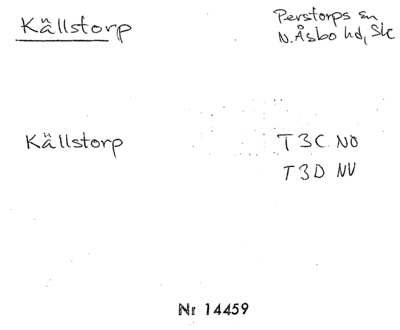 Källstorp
Perstorps sn
N. Åsbo hd, Sk
Källstorp
T 3C NO
T 3D NV
Nr 14459